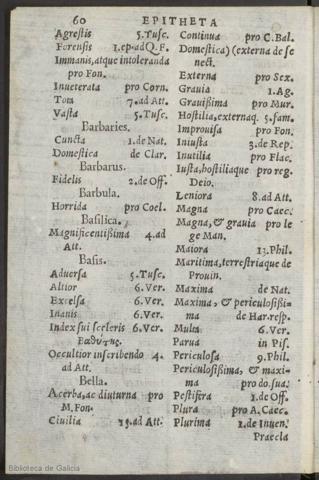 60 EPITHETA
Agrestis 5.Tusc.
Forensis 1.ep.ad Q.F.
Immanis, atque intoleranda
pro Fon.
Inueterata pro Corn.
Tota 7.ad Att.
Vasta 5.Tusc.
Barbaries.
Cuncta 1.de Nat.
Domestica de Clar.
Barbarus.
Fidelis 2.de Off.
Barbula.
Horrida pro Coel.
Basilica.
Magnificentißima 4.ad
Att.
Basis.
Aduersa 5.Tusc.
Altior 6.Ver.
Excelsa 6.Ver.
Inanis 6.Ver.
Index sui sceleris 6.Ver.
Βαθύτης.
Occultior inscribendo 4.
ad Att.
Bella.
Acerba, ac diuturna pro
M.Fon.
Ciuilia 15.ad Att.
Continua pro C.Bal.
Domestica) (externa de se
nect.
Externa pro Sex.
Grauia 1.Ag.
Grauißima pro Mur.
Hostilia, externaq. 5.fam.
Improuisa pro Fon.
Iniusta 3.de Rep.
Inutilia pro Flac.
Iusta, hostiliaque pro reg.
Deio.
Leniora 8.ad Att.
Magna pro Caec.
Magna, & grauia pro le
ge Man.
Maiora 13.Phil.
Maritima, terrestriaque de
Prouin.
Maxima de Nat.
Maxima, & periculosißi-
ma de Har.resp.
Multa 6.Ver.
Parua in Pis.
Periculosa 9.Phil.
Periculosißima, & maxi-
ma pro do.sua.
Pestifera 1.de Off.
Plura pro A.Caec.
Plurima 1.de Inuen.
Praecla
Biblioteca de Galicia